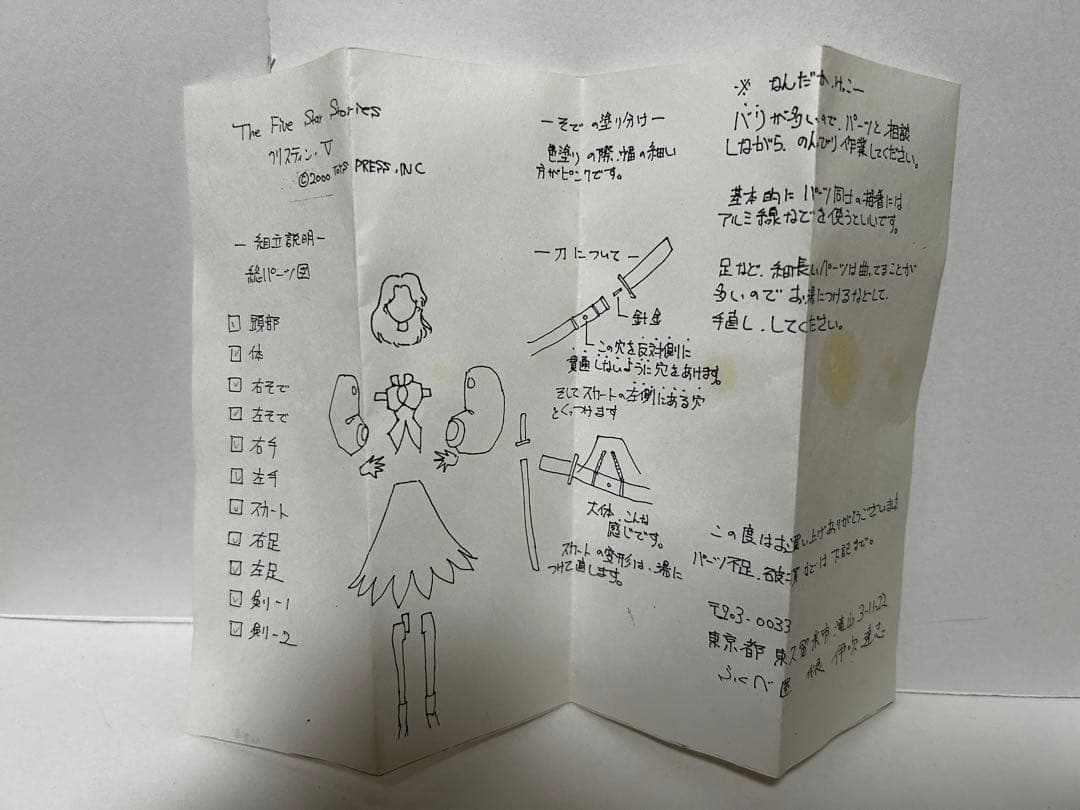 The Five Star Stories
クリスティン.V
©2000 TOYS PRESS, INC
－組立説明－
総パーツ図
頭部
体
右そで
左そで
右手
左手
スカート
右足
左足
剣－1
剣－2
－そでの塗り分け－
色塗りの際、幅の細い
方がピンクです。
－刀について－
針金
この穴を反対側に
貫通しないように穴をあけます。
そしてスカートの左側にある穴
とくっつけます
大体、こんな
感じです。
スカートの変形は、湯に
つけて直します。
※ なんだか、けっこー
バリが多いので、パーツと相談
しながら、のんびり作業してください。
基本的にパーツ同士の接着には
アルミ線などを使うといいです。
足など、細長いパーツは曲ってることが
多いので お湯につけるなどして、
手直し、してください。
この度はお買い上げありがとうございます
パーツ不足、破損などは下記まで。
〒203-0033
東京都 東久留米市 滝山 3-11-22
ふくべ屋 伊吹